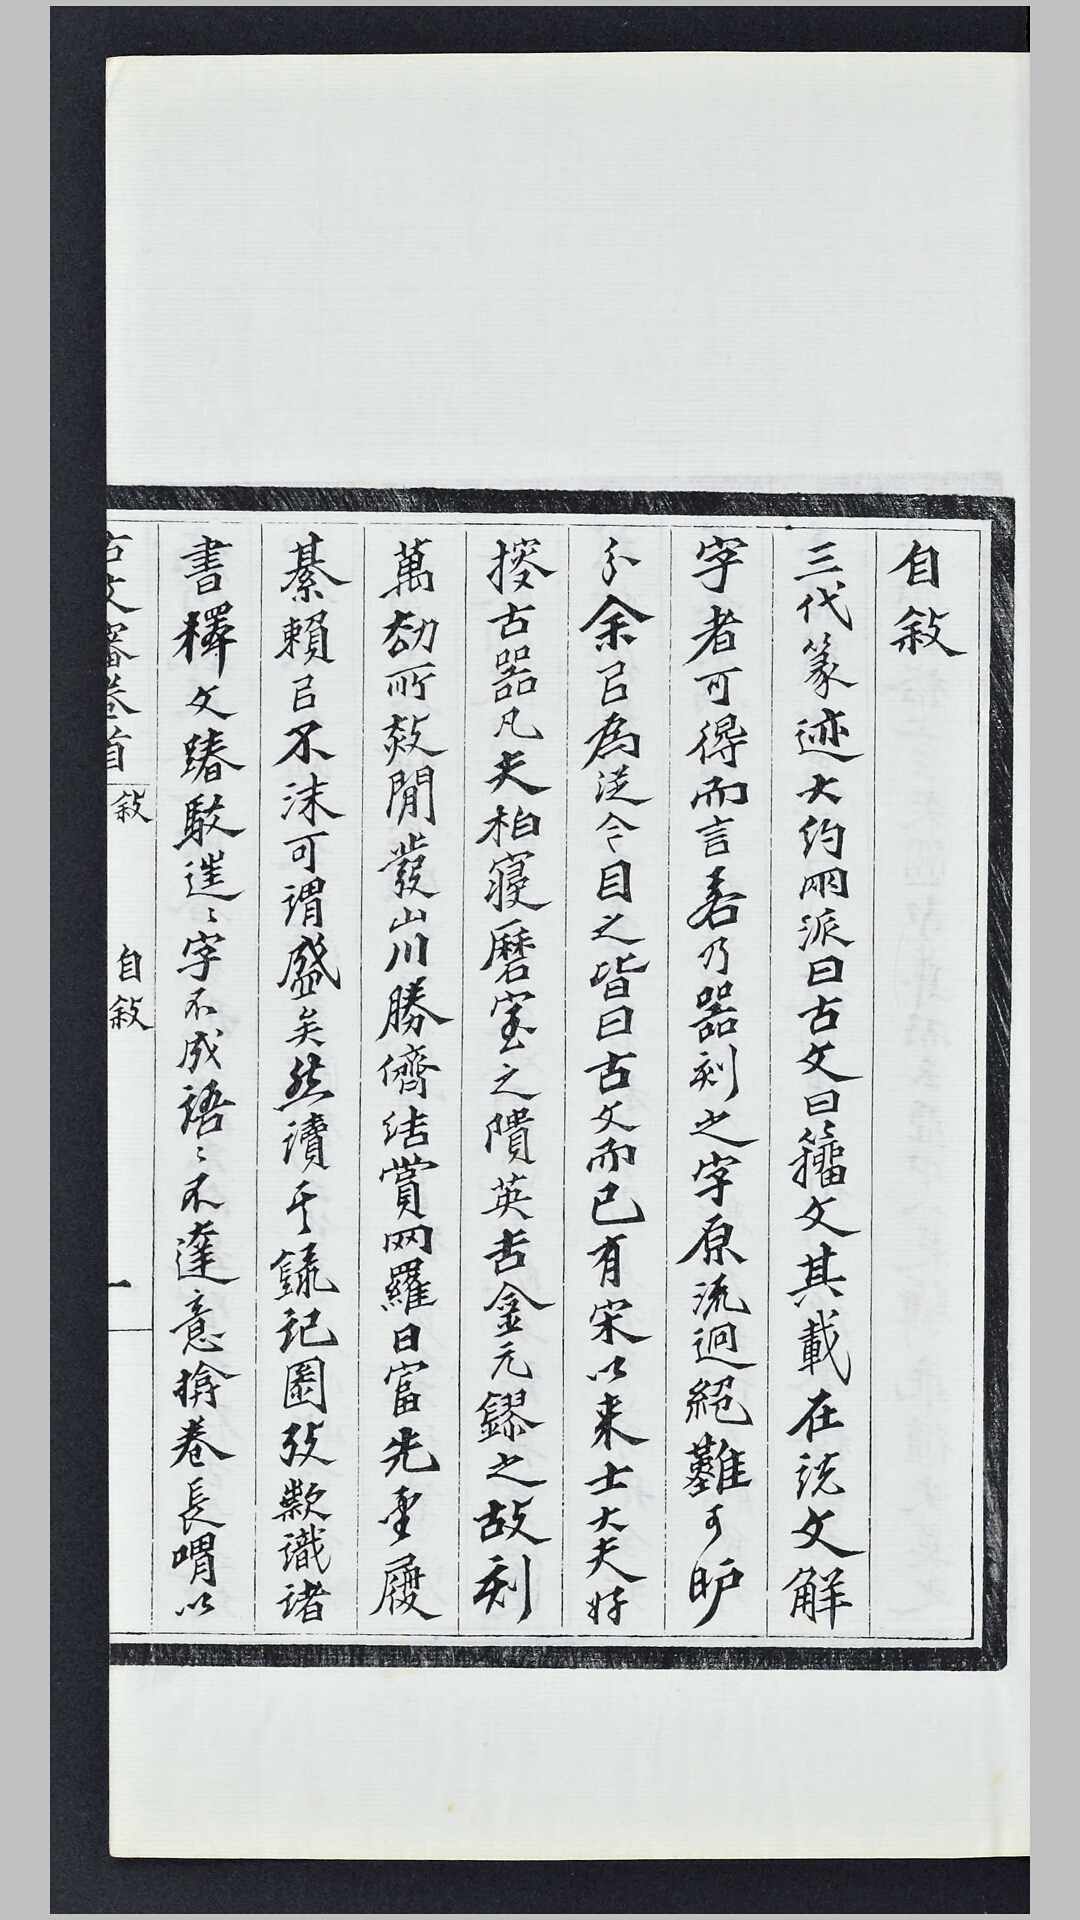 自敘
三代篆迹大約兩派曰古文曰籀文其載在說文解
字者可得而言若乃器刻之字原流迥絕難可
余㠯為從今目之皆曰古文而已有宋以來士大夫好
古器凡夫柏寢磨室之隤英吉金元鏐之故刻
萬劫所敚閒發山川勝儕結賞网羅日富先
綦賴㠯不沬可謂盛矣然讀其錄記圖攷款識諸
書釋文踳駁遝〻字不成語〻不達意揜卷長喟以
古文審卷首 敘 自敘 一